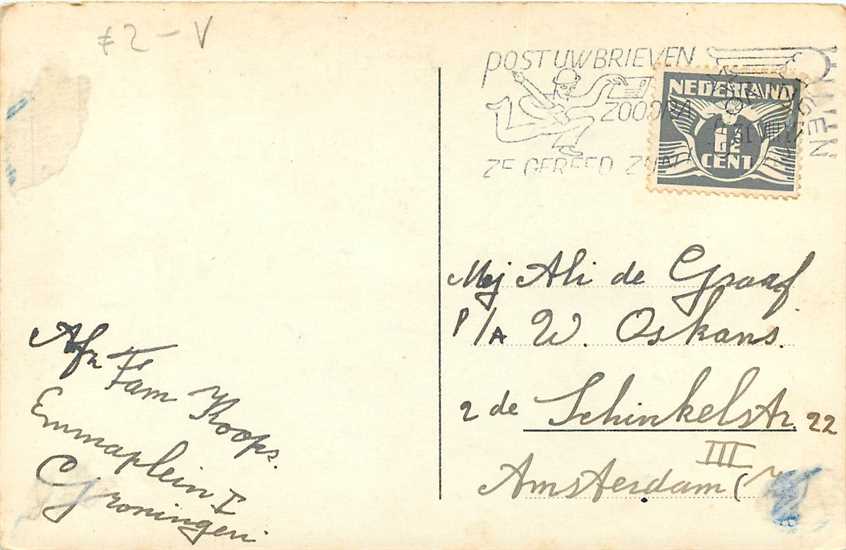 £ 2 - V
POST UW BRIEVEN
ZOODRA
ZE GEREED ZIJN
NEDERLAND
1½
CENT
Mej Ali de Graaf
P/A W. Oskans.
2 de Schinkelstr. 22
III
Amsterdam (
Afz Fam Koops.
Emmaplein I
Groningen.